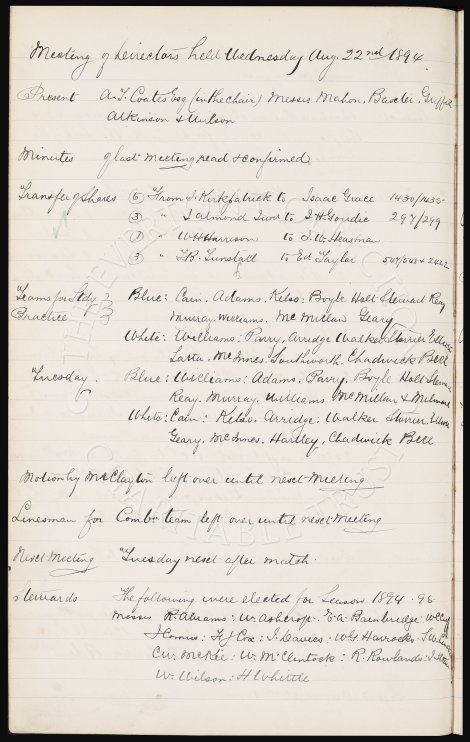 Meeting of Directors held Wednesday Aug. 22nd 1894.
Present A.T. Coates Esq (in the chair) Messrs Mahon, Baxter, Griffith
Atkinson & Wilson
Minutes of last meeting read & confirmed
Transfer of Shares (6) From J. Kirkpatrick to Isaac Grace 1430/1435
(3) " J almond Junr to J. H. Goudie 297/299
(1) " W H Harrison to J. W. Heasman
(3) " F.B. Tunstall to Ed Taylor 2422
Teams for Stdy Blue: Cain. Adams. Kelso: Boyle Holt Stewart Reay
Practice Murray. Williams. McMillan Geary
White: Williams: Parry. Arridge Walker Storrier Elliott
Latta. McInnes. Southworth. Chadwick Bell
Tuesday. Blue: Williams: Adams. Parry. Boyle Holt Stewart
Reay. Murray. Williams McMillan & Milward
White: Cain: Kelso. Arridge: Walker Storrier. Elliott
Geary. McInnes. Hartley, Chadwick Bell
Motion by Mr Clayton left over until next Meeting
Linesman for Combn team left over until next Meeting
Next Meeting Tuesday next after match.
Stewards The following were elected for Season 1894-95
Messrs R. Abrams: W. Ashcroft. E. A. Bainbridge.
H J Cox: J. Davies. W G Harrocks.
C W. McKee: W. McClintock: R. Rowlands:
W. Wilson: H Whittle